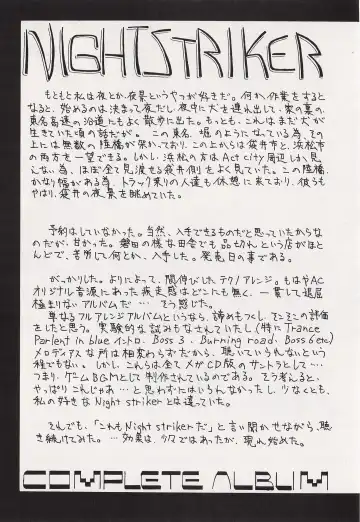 NIGHTSTRIKER
もともと私は夜とか夜景というやつが好きだ。何か作業をすると
なると、始めるのは決まって夜だし、夜中に犬を連れ出して、家の裏の
東名高速の沿道にもよく散歩に出た。もっとも、これはまだ犬が
生きていた頃の話だが。この東名、堀のようになっている為、その
上には無数の陸橋が架かっており、この上からは袋井市と、浜松市
の両方を一望できる。しかし、浜松の方は Act city 周辺しか見
えない為、ほぼ全て見渡せる袋井側をよく見ていた。この陸橋、
かなり幅がある為、トラック乗りの人達も休憩に来ており、彼らも
やはり、袋井の夜景を眺めていた。
予約はしていなかった。当然、入手できるものだと思っていたからな
のだが、甘かった。磐田の様な田舎でも品切れという店がほと
んどで、苦労して何とか、入手した。発売日の事である。
がっかりした。よりによって、間伸びした、テクノアレンジ。もはやAC
オリジナル音源にあった疾走感はどこにも無く、一貫して退屈
極まりないアルバムだ…そう感じた。
単なるフルアレンジアルバムというなら、諦めもつくし、そこそこの評価
をしたと思う。実験的な試みもなされていたし(特にTrance
Parlent in blue イントロ、Boss 3、Burning road、Boss 6 etc)
メロディアスな所は相変わらずだから、聴いていられないという
程でもない。しかし、これらは全てメガCD版のサントラとして…
つまり、ゲームBGMとして制作されているのである。そう考えると、
やっぱりこれじゃあ…と思わずにはいられなかったし、少なくとも、
私の好きな Night striker とは違っていた。
それでも、「これもNight strikerだ」と言い聞かせながら、聴
き続けてみた。…効果は、少々ではあったが、現れ始めた。
COMPLETE ALBUM